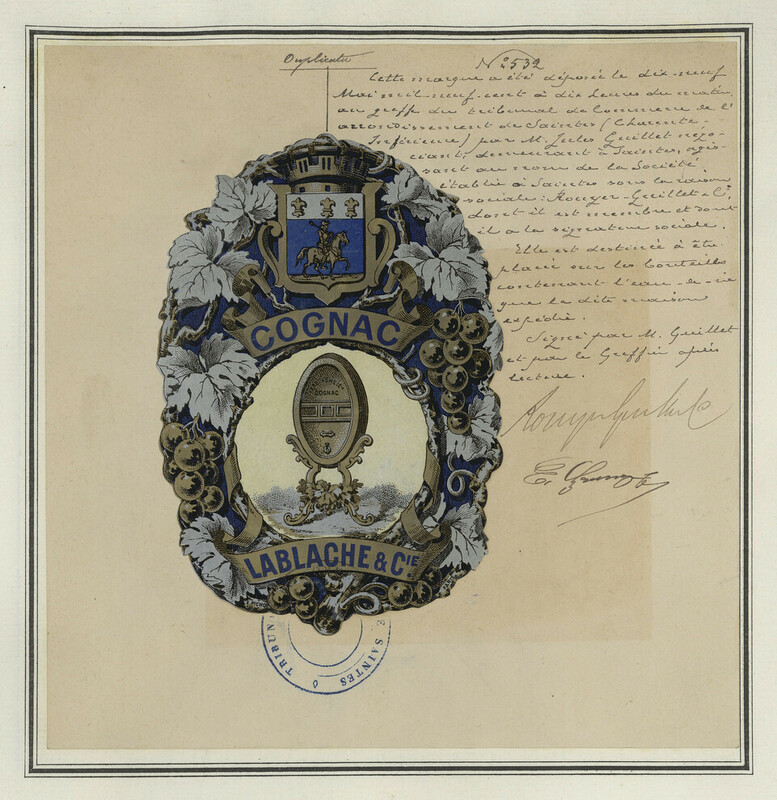 Duplicata
N° 2532
Cette marque a été déposée le dix-neuf
Mai mil-neuf-cent à dix heures du matin,
au greffe du tribunal de Commerce de l'
arrondissement de Saintes (Charente-
Inférieure) par M. Jules Guillet négo-
ciant, demeurant à Saintes, agis-
sant au nom de la Société
établie à Saintes sous la raison
sociale: Rouyer-Guillet & Cie,
dont il est membre et dont
il a la signature sociale.
Elle est destinée à être
placée sur les bouteilles
contenant l'eau-de-vie
que la dite maison
expédie.
Signé par M. Guillet
et par le Greffier après
lecture.
COGNAC
COGNAC
LABLACHE & CIE
TRIBUN
E SAINTES